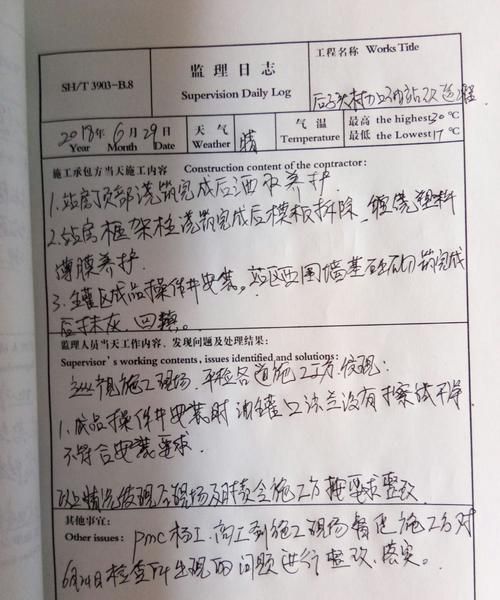 SH/T 3903-B.8
监理日志
Supervision Daily Log
工程名称 Works Title
加油站改造工程
2018年6月29日
Year Month Date
天气 晴
Weather
气温
Temperature
最高 the highest 30℃
最低 the Lowest 17℃
施工承包方当天施工内容 Construction content of the contractor:
1.站房顶部浇筑完成后洒水养护.
2.站房框架柱浇筑完成后模板拆除 缠绕塑料
薄膜养护.
3.罐区成品操作井安装。站区西围墙基础砌筑完成
后抹灰、回填。
监理人员当天工作内容、发现问题及处理结果:
Supervisor's working contents, issues identified and solutions:
巡视施工现场,平检各道施工工序,发现:
1.成品操作井安装时油罐口法兰没有擦拭干净
不符合安装要求.
以上情况发现后现场及时责令施工方按要求整改.
其他事宜:
Other issues:
pmc杨工、高工到施工现场督促施工方对
6月24日检查所出现的问题进行整改、落实。